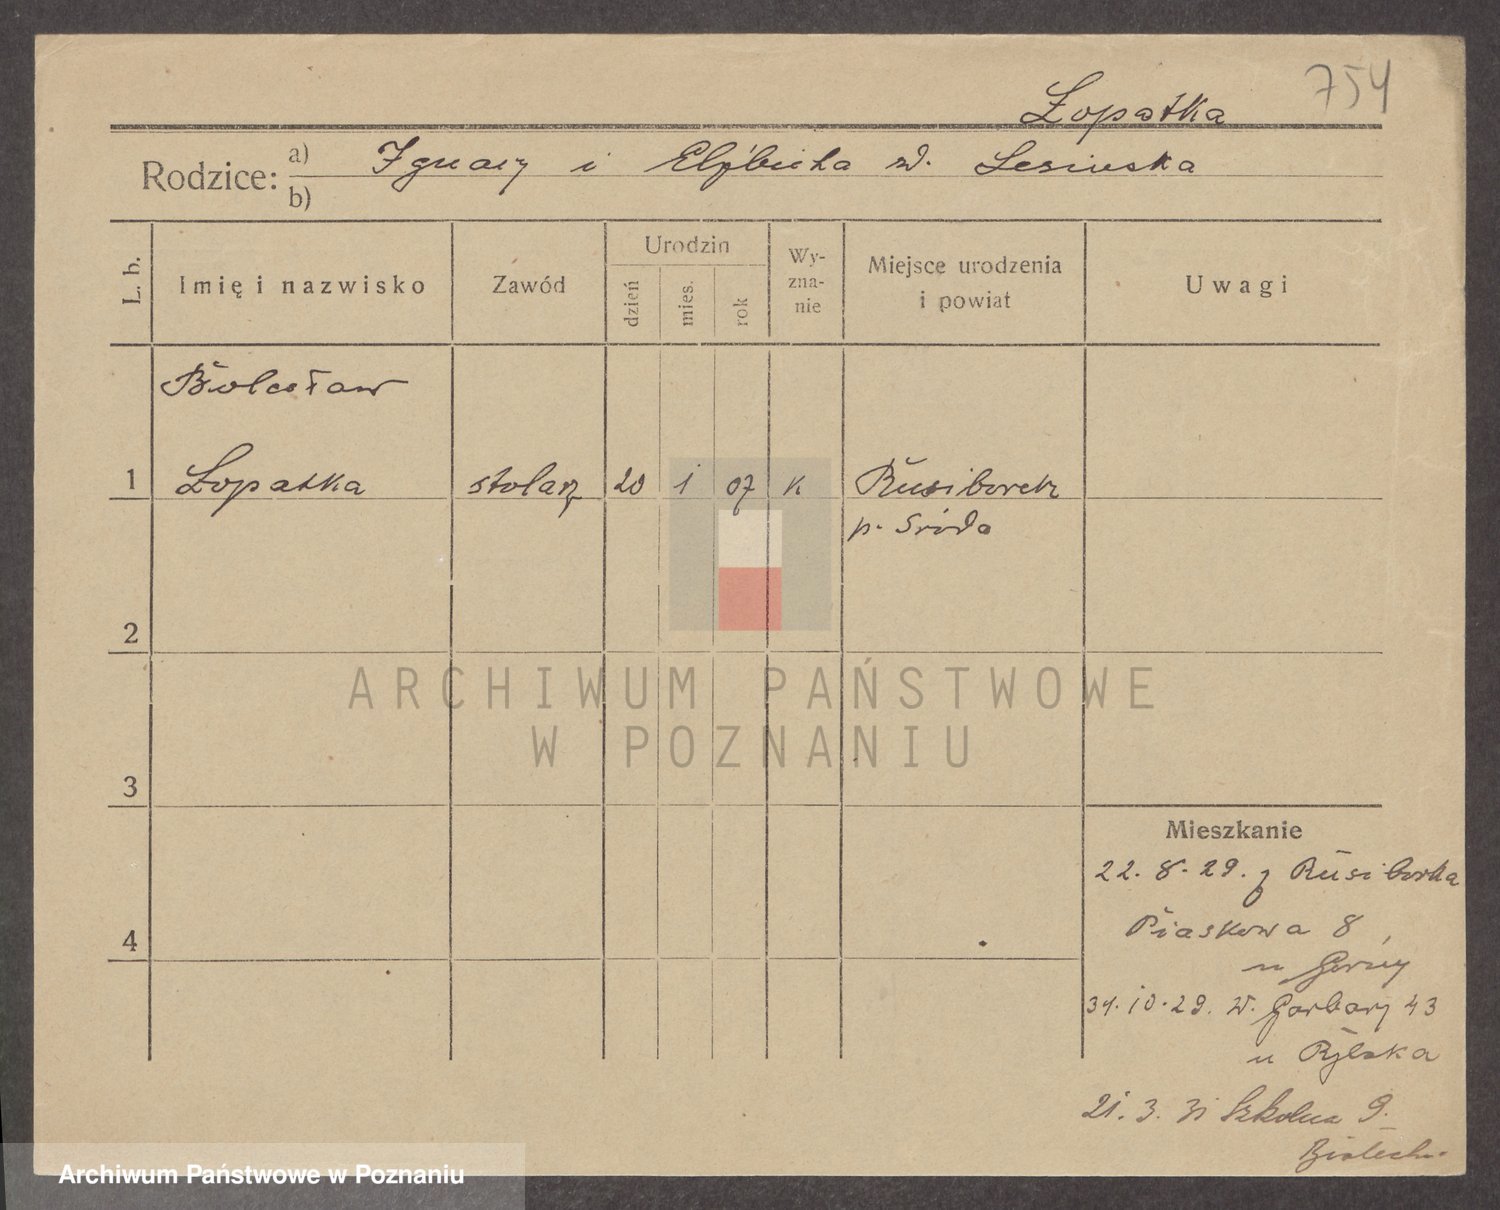 754
Łopatka
Rodzice: a) Ignacy i Elżbieta zd. Lesińska
b)
L. b. Imię i nazwisko Zawód Urodzin dzień mies. rok Wyznanie Miejsce urodzenia i powiat Uwagi
Bolesław
1 Łopatka stolarz 20 1 07 k Rusiborek
p. Środa
2
3
4
Mieszkanie
22. 8. 29. z Rusiborka
Piaskowa 8
u
31. 10. 29. W. Garbary 43
u Rybska
21. 3. 31 Szkolna 9.
ARCHIWUM PAŃSTWOWE
W POZNANIU
Archiwum Państwowe w Poznaniu